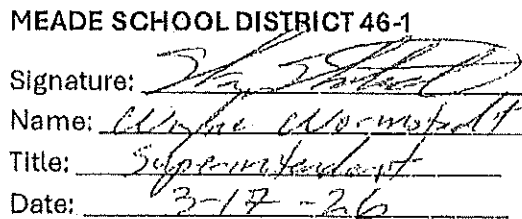 MEADE SCHOOL DISTRICT 46-1
Signature:
Name: Wayne Wormstadt
Title: Superintendent
Date: 3-17-26